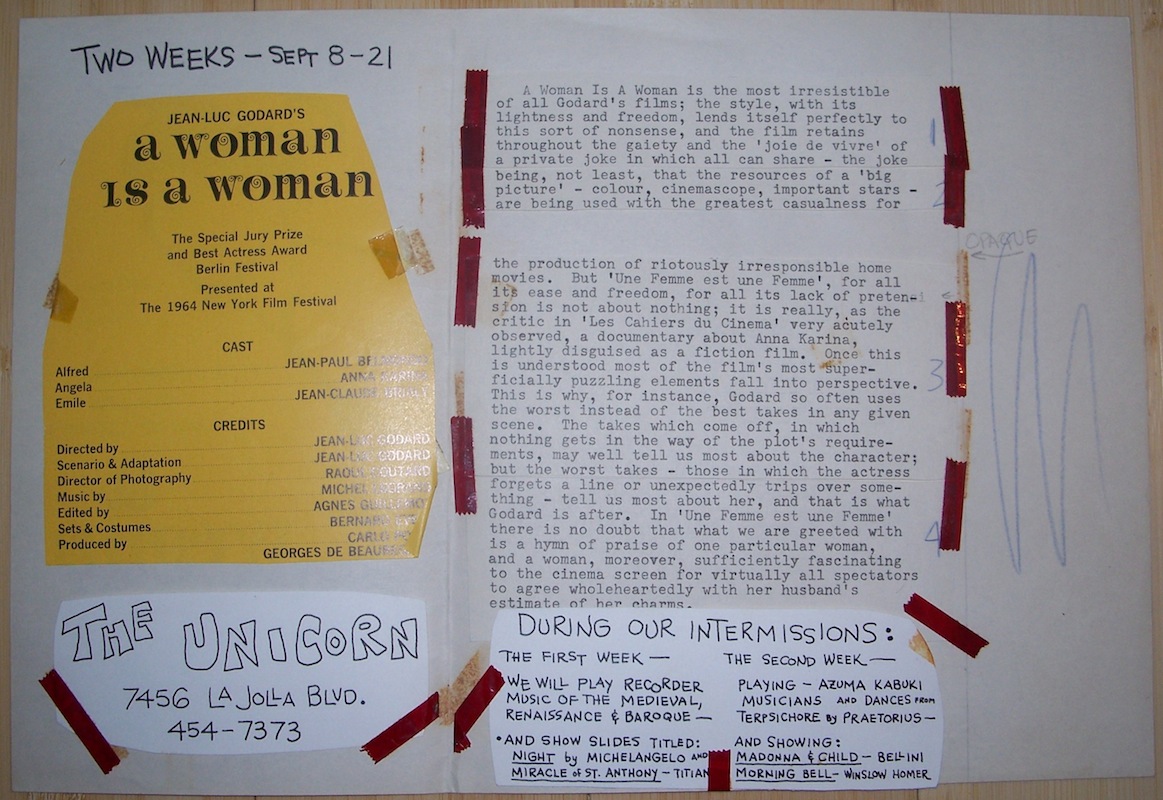 TWO WEEKS - SEPT 8-21
JEAN-LUC GODARD'S
a woman
is a woman
The Special Jury Prize
and Best Actress Award
Berlin Festival
Presented at
The 1964 New York Film Festival
CAST
Alfred JEAN-PAUL
Angela ANNA KARINA
Emile JEAN-CLAUDE BRIALY
CREDITS
Directed by JEAN-LUC GODARD
Scenario & Adaptation JEAN-LUC GODARD
Director of Photography RAOUL COUTARD
Music by MICHEL LEGRAND
Edited by AGNES GUILLEMOT
Sets & Costumes BERNARD
Produced by CARLO
GEORGES DE
THE UNICORN
7456 LA JOLLA BLVD.
454-7373
A Woman Is A Woman is the most irresistible
of all Godard's films; the style, with its
lightness and freedom, lends itself perfectly to
this sort of nonsense, and the film retains
throughout the gaiety and the 'joie de vivre' of
a private joke in which all can share - the joke
being, not least, that the resources of a 'big
picture' - colour, cinemascope, important stars -
are being used with the greatest casualness for
the production of riotously irresponsible home
movies. But 'Une Femme est une Femme', for all
its ease and freedom, for all its lack of preten-
sion is not about nothing; it is really, as the
critic in 'Les Cahiers du Cinema' very acutely
observed, a documentary about Anna Karina,
lightly disguised as a fiction film. Once this
is understood most of the film's most super-
ficially puzzling elements fall into perspective.
This is why, for instance, Godard so often uses
the worst instead of the best takes in any given
scene. The takes which come off, in which
nothing gets in the way of the plot's require-
ments, may well tell us most about the character;
but the worst takes - those in which the actress
forgets a line or unexpectedly trips over some-
thing - tell us most about her, and that is what
Godard is after. In 'Une Femme est une Femme'
there is no doubt that what we are greeted with
is a hymn of praise of one particular woman,
and a woman, moreover, sufficiently fascinating
to the cinema screen for virtually all spectators
to agree wholeheartedly with her husband's
estimate of her charms.
1
2
3
4
OPAQUE
DURING OUR INTERMISSIONS:
THE FIRST WEEK —
WE WILL PLAY RECORDER
MUSIC OF THE MEDIEVAL,
RENAISSANCE & BAROQUE —
•AND SHOW SLIDES TITLED:
NIGHT by MICHELANGELO AND
MIRACLE of ST. ANTHONY - TITIAN
THE SECOND WEEK —
PLAYING - AZUMA KABUKI
MUSICIANS AND DANCES FROM
TERPSICHORE BY PRAETORIUS —
AND SHOWING:
MADONNA & CHILD - BELLINI
MORNING BELL - WINSLOW HOMER